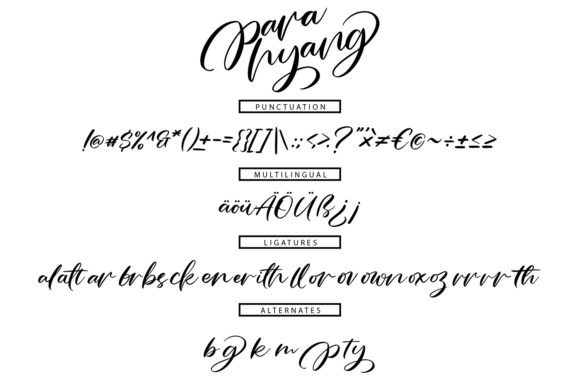 Para
hyang
PUNCTUATION
!@#$%^&*()±-={}[]|\:;<>.?"'`×≠€©~÷±≤≥
MULTILINGUAL
äöüÄÖÜß¿¡
LIGATURES
al att ar br bs ck en er ith ll or ov own ox oz rr rr th
ALTERNATES
b g k m p ty